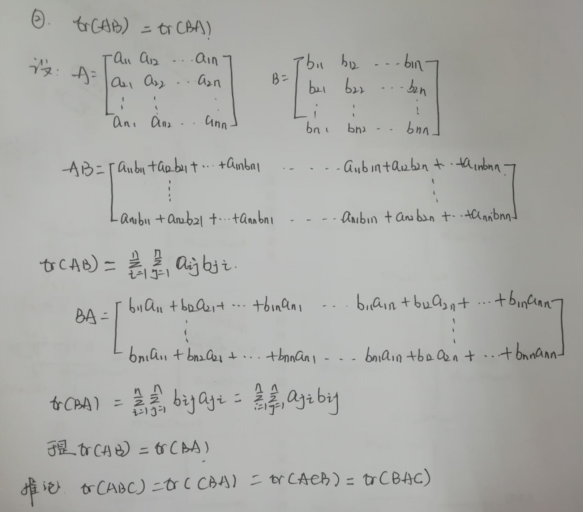 ②. tr(AB) = tr(BA)
设: A= [a11 a12 ... a1n B= [b11 b12 ... b1n
a21 a22 ... a2n b21 b22 ... b2n
⋮ ⋮ ⋮ ⋮ ⋮ ⋮
an1 an2 ... ann] bn1 bn2 ... bnn]
AB= [a11b11+a12b21+...+a1nbn1 ... ... a11b1n+a12b2n+...+a1nbnn
⋮ ⋮
an1b11+an2b21+...+annbn1 ... ... an1b1n+an2b2n+...+annbnn]
tr(AB) = ∑i=1n ∑j=1n aijbji.
BA= [b11a11+b12a21+...+b1nan1 ... b11a1n+b12a2n+...+b1nann
⋮ ⋮
bn1a11+bn2a21+...+bnnan1 ... bn1a1n+bn2a2n+...+bnnann]
tr(BA) = ∑i=1n ∑j=1n bijaji = ∑i=1n ∑j=1n ajibij
tr(AB) = tr(BA)
推论 tr(ABC) = tr(CBA) = tr(ACB) = tr(BAC)